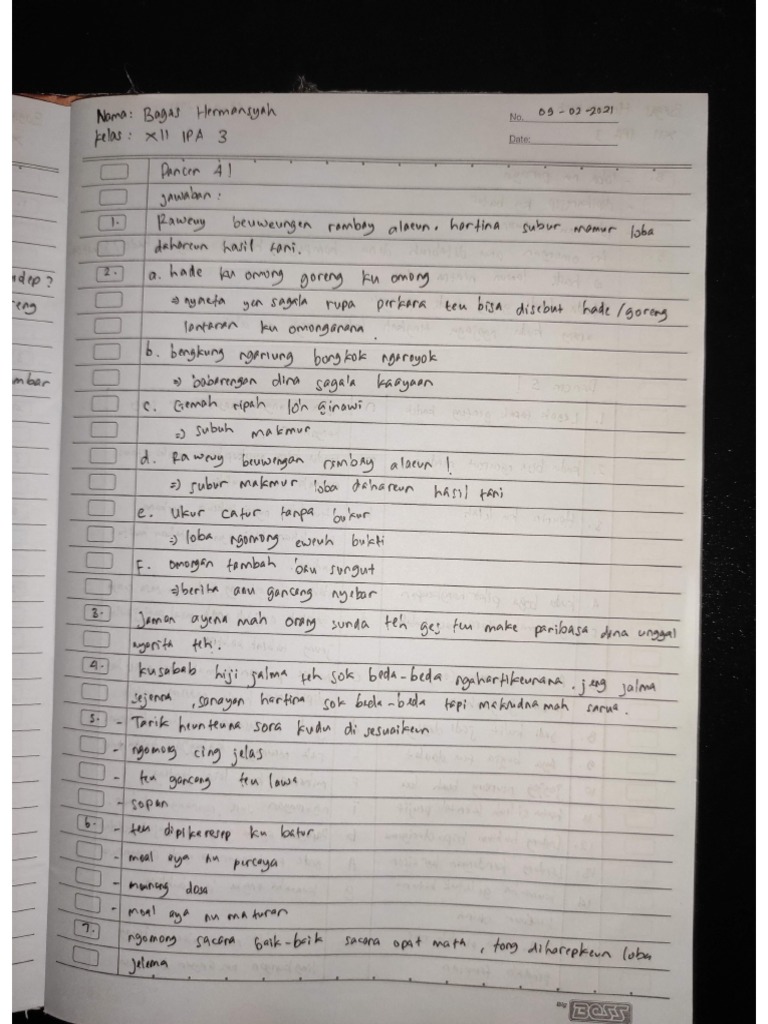 Nama: Bagas Hermansyah
No. 09-02-2021
Kelas: XII IPA 3
Date:
Pancen 4!
Jawaban:
1. Raweuy beuweungen rambay alaeun. hartina subur mamur loba
dahareun hasil tani.
2. a. hade ku omong goreng ku omong
⇒ nyaeta yen sagala rupa perkara teu bisa disebut hade/goreng
lantaran ku omonganana.
b. bengkung ngariung bongkok ngaroyok
⇒ babarengan dina sagala kaayaan
c. Gemah ripah loh ginawi
⇒ subuh makmur
d. Raweuy beuweungan rambay alaeun!
⇒ subur makmur loba dahareun hasil tani
e. Ukur catur tanpa bukur
⇒ loba ngomong eweuh bukti
F. omongan tambah bau sungut
⇒ berita anu gancang nyebar
3. Jaman ayena mah orang sunda teh ges teu make paribasa dina unggal
nyarita teh.
4. kusabab hiji jalma teh sok beda-beda ngahartikeunana. jeng jalma
sejenna, sanayan hartina sok beda-beda tapi maksudna mah sarua.
5. - Tarik heunteuna sora kudu di sesuaikeun
- ngomong cing jelas
- teu gancang teu lawa
- sopan
6. - teu dipikaresep ku batur
- moal aya nu percaya
- meunang dosa
- moal aya nu maturan
7. ngomong sacara baik-baik sacara opat mata, tong diharepkeun loba
jelema
ndep?
reng
mbar
BOSS